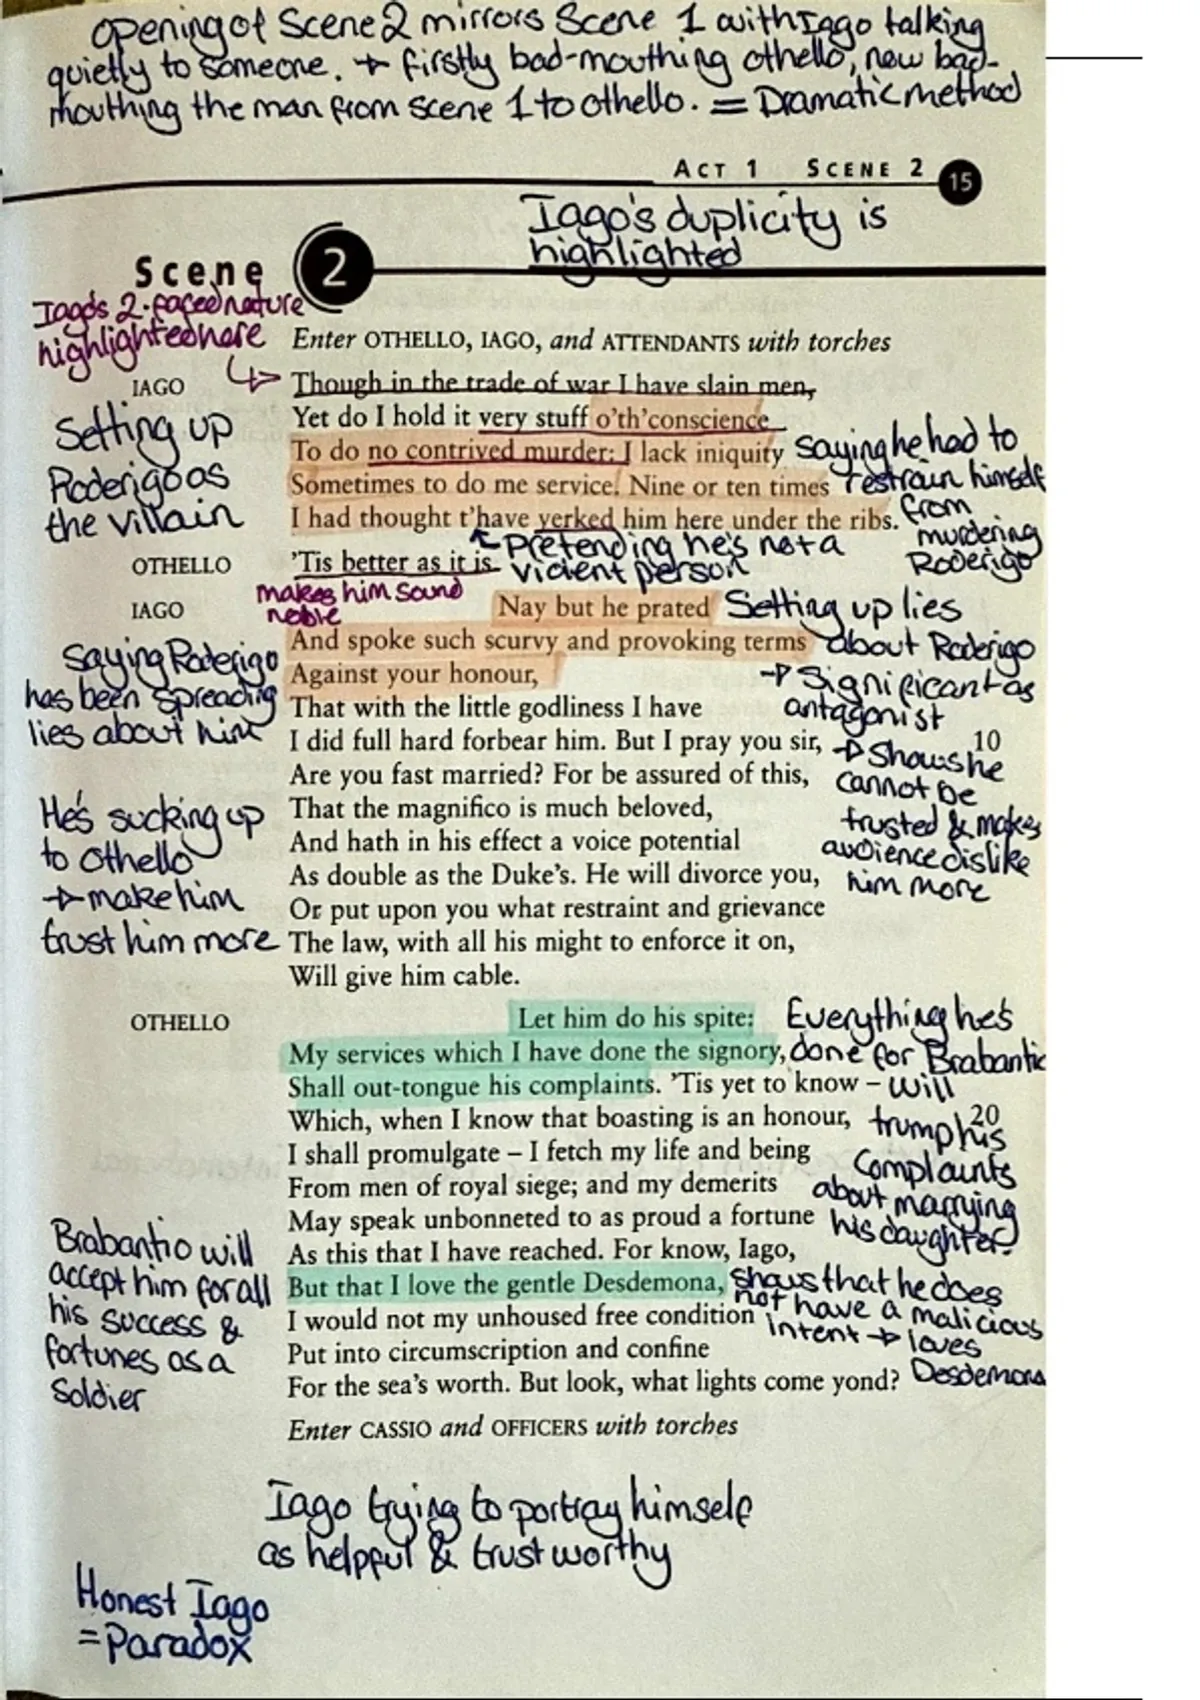 opening of Scene 2 mirrors Scene 1 with Iago talking
quietly to someone. → firstly bad-mouthing othello, now bad-
mouthing the man from scene 1 to othello. = Dramatic method
ACT 1 SCENE 2 15
Iago's duplicity is
highlighted
Scene 2
Iago's 2-faced nature
highlighted here
Enter OTHELLO, IAGO, and ATTENDANTS with torches
IAGO Though in the trade of war I have slain men,
Yet do I hold it very stuff o'th'conscience
To do no contrived murder: I lack iniquity
Sometimes to do me service. Nine or ten times
I had thought t'have yerked him here under the ribs.
Setting up
Roderigo as
the villain
saying he had to
restrain himself
from
murdering
Roderigo
OTHELLO 'Tis better as it is.
Pretending he's not a
violent person
makes him sound
noble
IAGO Nay but he prated
And spoke such scurvy and provoking terms
Against your honour,
That with the little godliness I have
I did full hard forbear him. But I pray you sir, 10
Are you fast married? For be assured of this,
That the magnifico is much beloved,
And hath in his effect a voice potential
As double as the Duke's. He will divorce you,
Or put upon you what restraint and grievance
The law, with all his might to enforce it on,
Will give him cable.
Setting up lies
about Roderigo
→ Significant as
antagonist
→ Shows he
cannot be
trusted & makes
audience dislike
him more
saying Roderigo
has been spreading
lies about him
He's sucking up
to othello
→ make him
trust him more
OTHELLO Let him do his spite:
My services which I have done the signory,
Shall out-tongue his complaints. 'Tis yet to know –
Which, when I know that boasting is an honour, 20
I shall promulgate – I fetch my life and being
From men of royal siege; and my demerits
May speak unbonneted to as proud a fortune
As this that I have reached. For know, Iago,
But that I love the gentle Desdemona,
I would not my unhoused free condition
Put into circumscription and confine
For the sea's worth. But look, what lights come yond?
Everything he's
done for Brabantio
will
trump his
complaints
about marrying
his daughter.
shows that he does
not have a malicious
intent → loves
Desdemona
Brabantio will
accept him for all
his success &
fortunes as a
Soldier
Enter CASSIO and OFFICERS with torches
Iago trying to portray himself
as helpful & trustworthy
Honest Iago
= Paradox